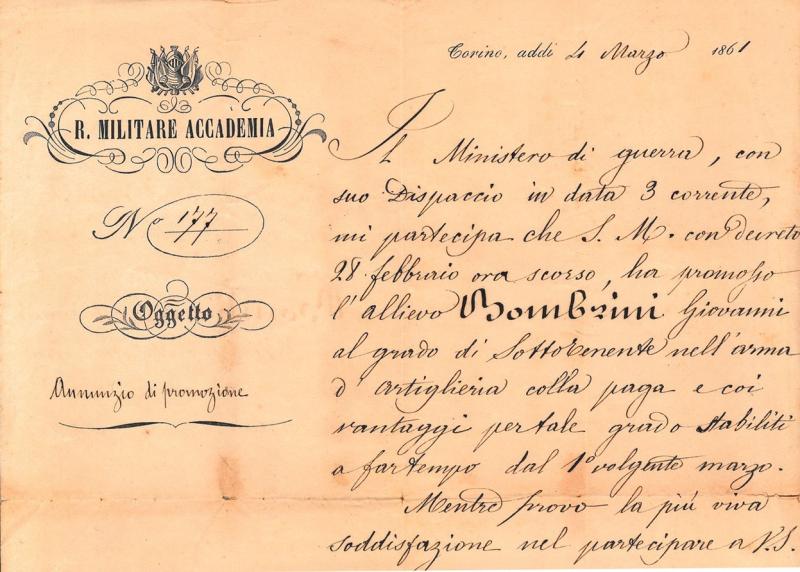 R. MILITARE ACCADEMIA
No 177
Oggetto
Annunzio di promozione
Torino, addì 4 Marzo 1861
Il Ministero di guerra, con
suo Dispaccio in data 3 corrente,
mi partecipa che S. M. con decreto
28 febbraio ora scorso, ha promosso
l'allievo Bombrini Giovanni
al grado di Sottotenente nell'arma
d'artiglieria colla paga e coi
vantaggi per tale grado stabiliti
a far tempo dal 1° volgente marzo.
Mentre provo la più viva
soddisfazione nel partecipare a V.S.